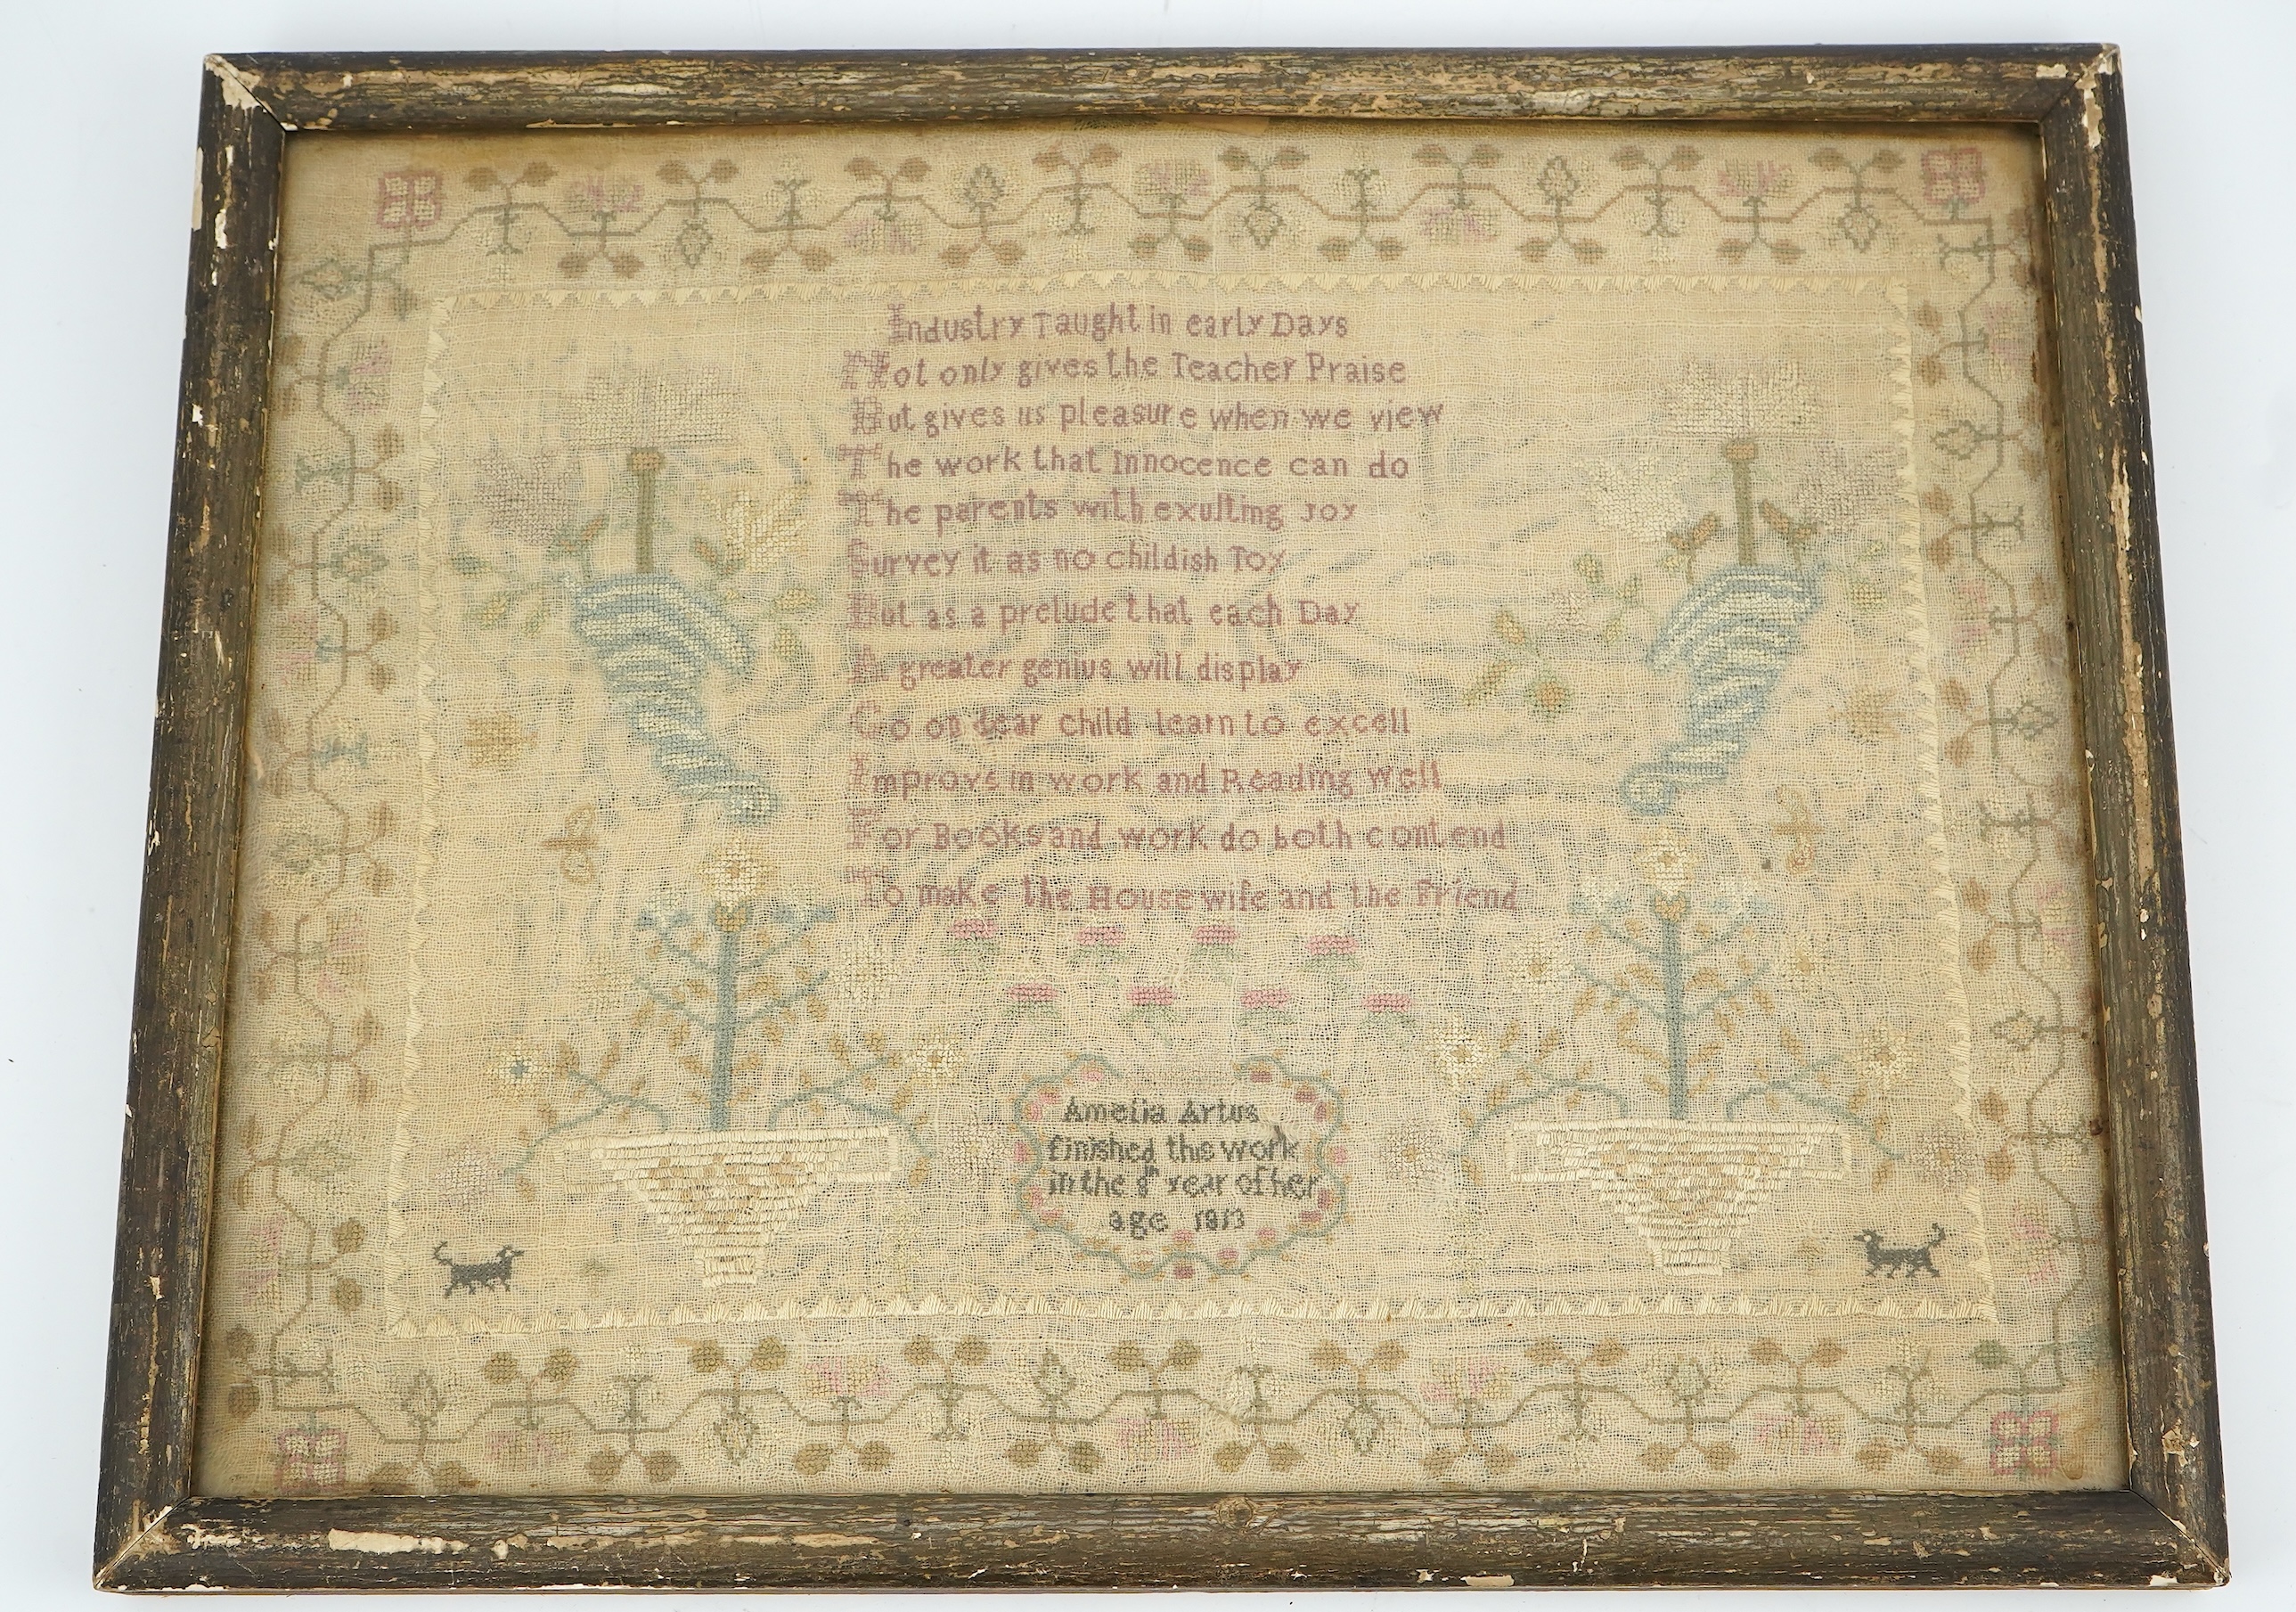 Industry Taught in early Days
Not only gives the Teacher Praise
But gives us pleasure when we view
The work that Innocence can do
The parents with exulting Joy
Survey it as no childish Toy
But as a prelude that each Day
A greater genius will display
Go on dear child learn to excell
Improve in work and Reading Well
For Books and work do both contend
To make the Housewife and the Friend
Amelia Artus
finished this work
in the 8th year of her
age 1813